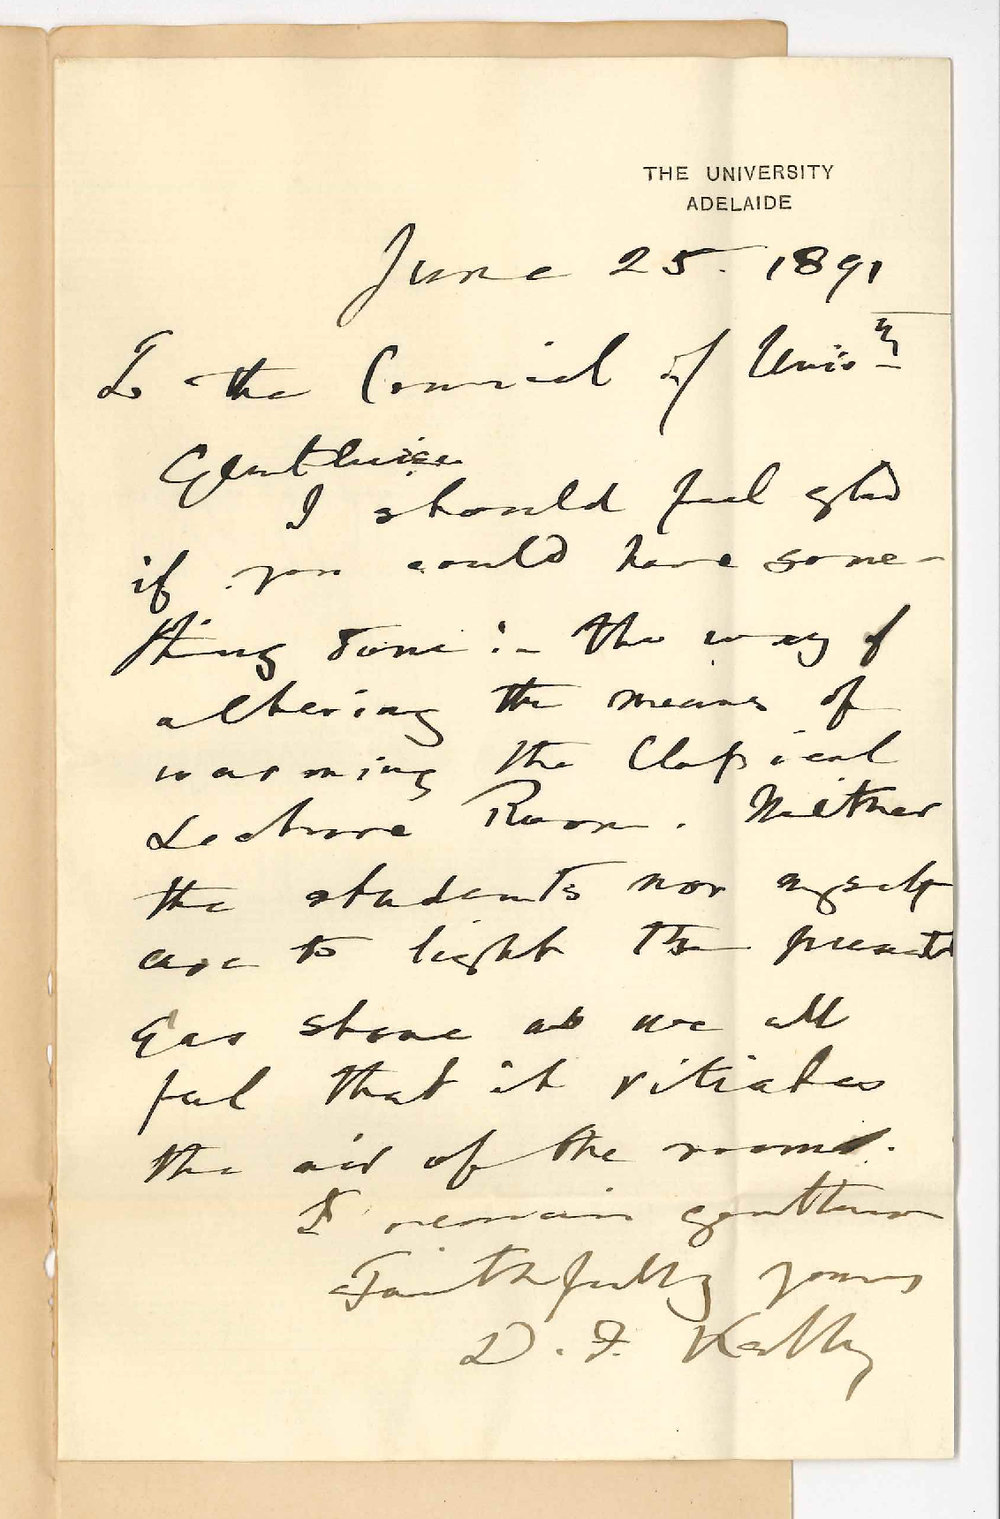 THE UNIVERSITY
ADELAIDE
June 25. 1891
To the Council of Univ.ty
Gentlemen
I should feel glad
if you could have some-
thing done in the way of
altering the means of
warming the Classical
Lecture Room. Neither
the students nor myself
care to light the present
Gas stove as we all
feel that it vitiates
the air of the room.
I remain gentlemen
Faithfully yours
D. F. Kelly